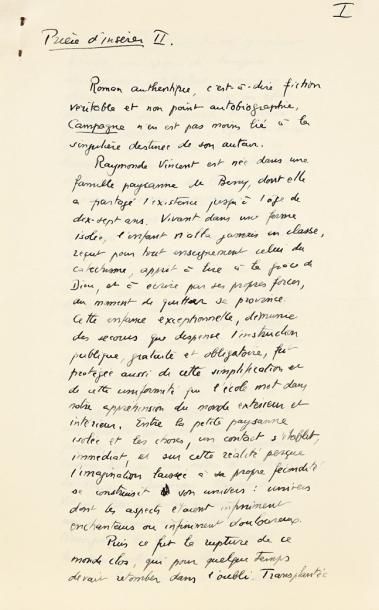 I
Prière d'insérer II.
Roman authentique, c'est-à-dire fiction
véritable et non point autobiographie,
Campagne n'en est pas moins lié à la
singulière destinée de son auteur.
Raymonde Vincent est née dans une
famille paysanne du Berry, dont elle
a partagé l'existence jusqu'à l'âge de
dix-sept ans. Vivant dans une ferme
isolée, l'enfant n'alla jamais en classe,
reçut pour tout enseignement celui du
catéchisme, apprit à lire à la grâce de
Dieu, et à écrire par ses propres forces,
au moment de quitter sa province.
Cette enfance exceptionnelle, démunie
des secours que dispense l'instruction
publique, gratuite et obligatoire, fut
protégée aussi de cette simplification et
de cette uniformité que l'école met dans
notre appréhension du monde extérieur et
intérieur. Entre la petite paysanne
isolée et les choses, un contact s'établit,
immédiat, et sur cette réalité perçue
l'imagination laissée à sa propre fécondité
se construisit son univers : univers
dont les aspects étaient infiniment
enchanteurs ou infiniment douloureux.
Puis ce fut la rupture de ce
monde clos, qui pour quelque temps
devait retomber dans l'oubli. Transplantée